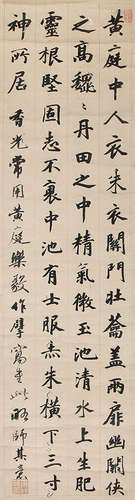 黃庭中人衣朱衣關門壯蘥蓋兩扉幽關俠
之高巍〻丹田之中精氣微玉池清水上生肥
靈根堅固志不衰中池有士服赤朱橫下三寸
神所居 香光常用黃庭樂毅作擘窠書此略師其意